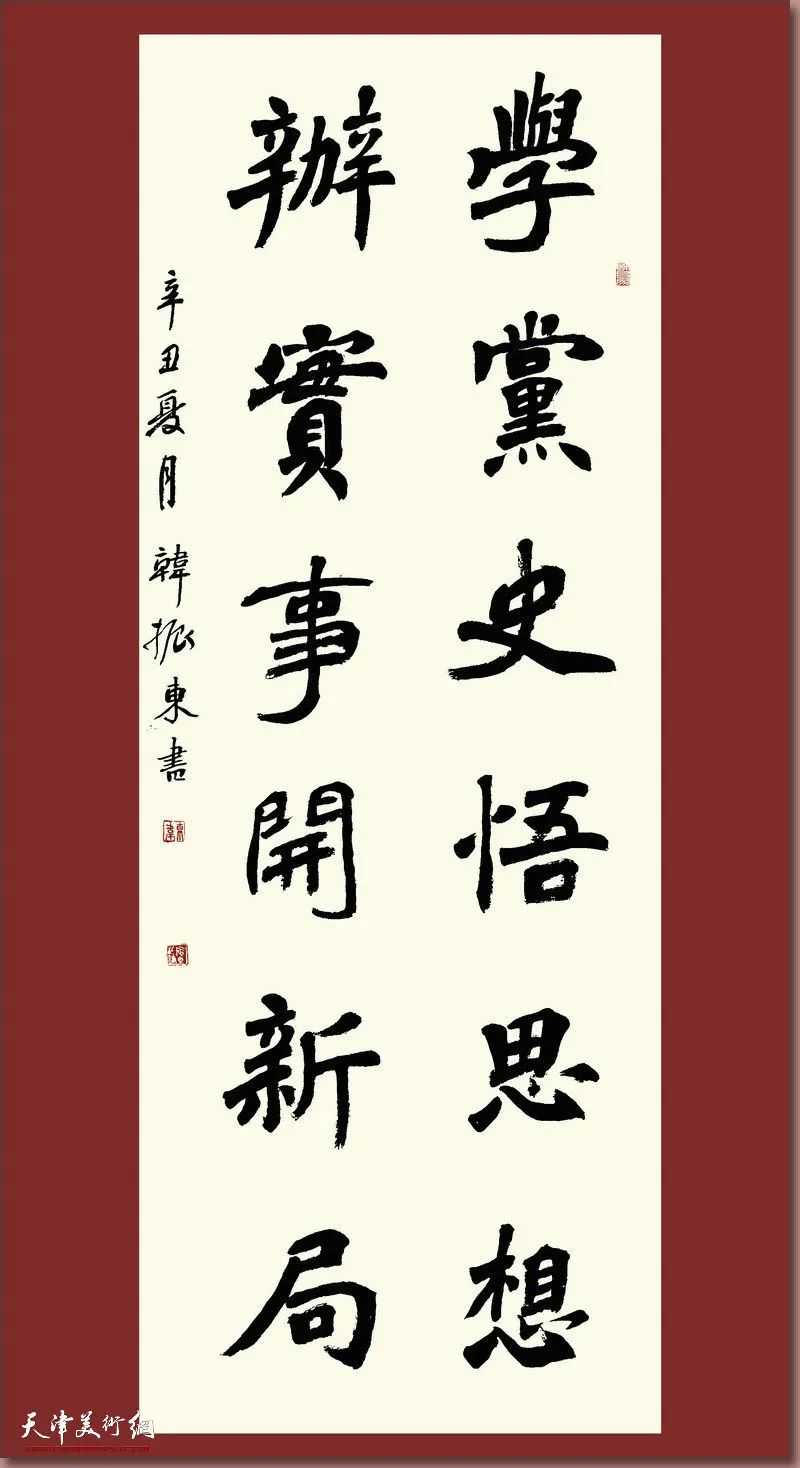 學黨史悟思想
辦實事開新局
辛丑夏月 韓振東書
天津美術網